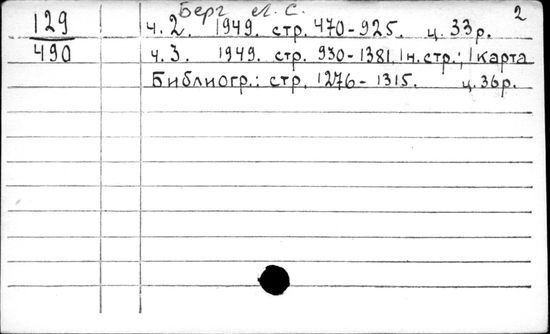 Берг Л. С. 2
129 ч. 2. 1949. стр. 470-925. ц. 33р.
490 ч. 3. 1949. стр. 930-1381, 1н.стр.; 1 карта
Библиогр.: стр. 1276-1315. ц. 36р.